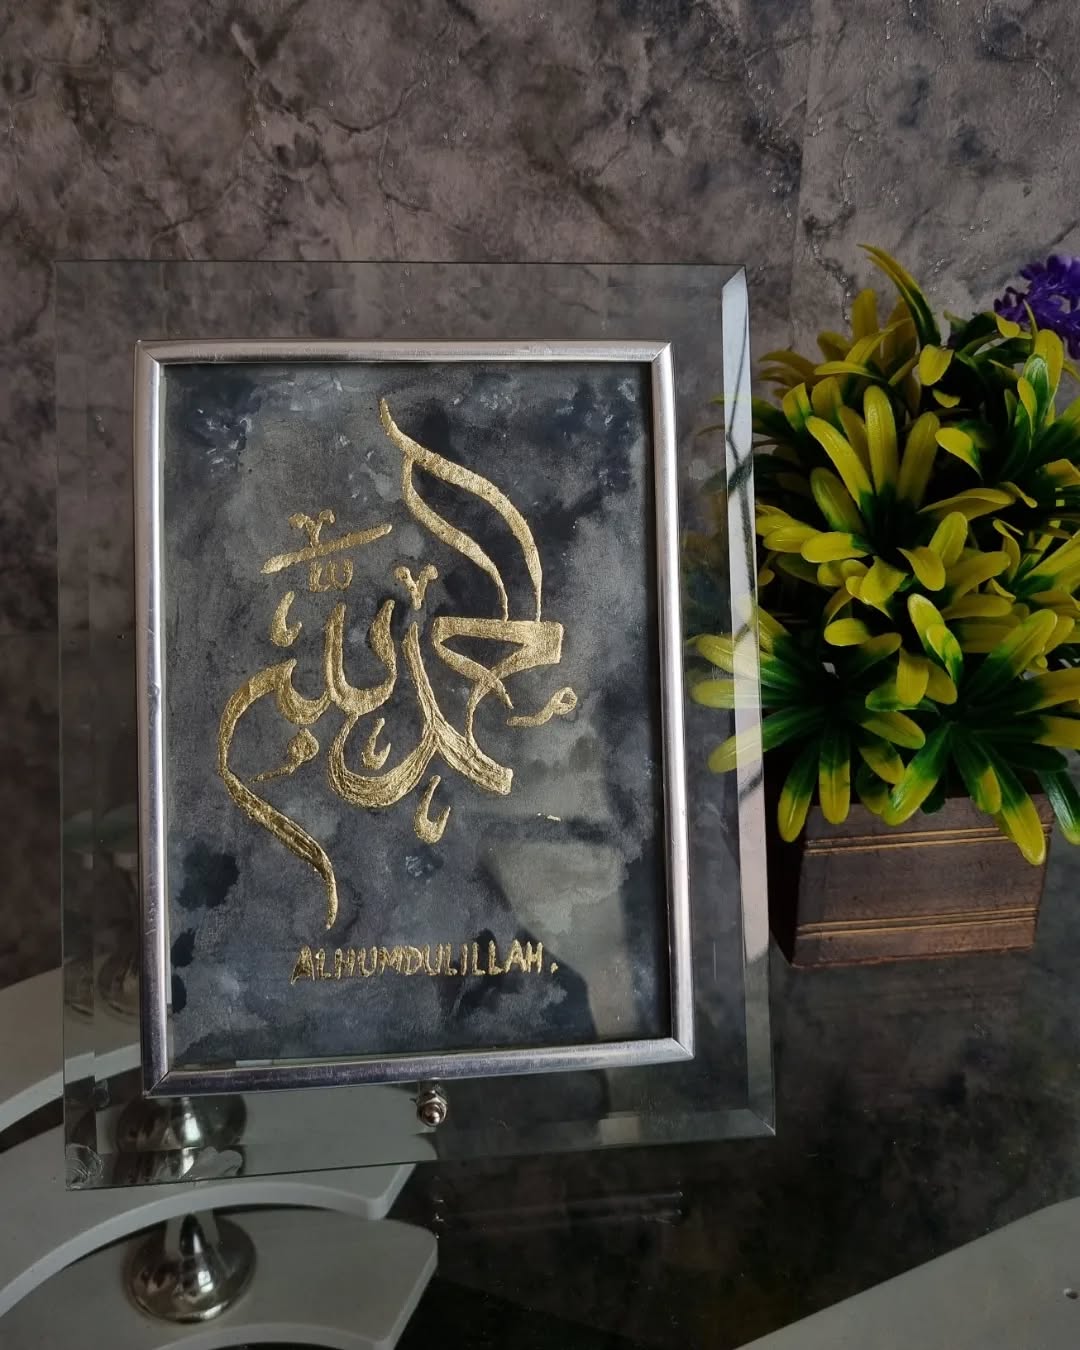 الحمد لله
ALHUMDULILLAH.